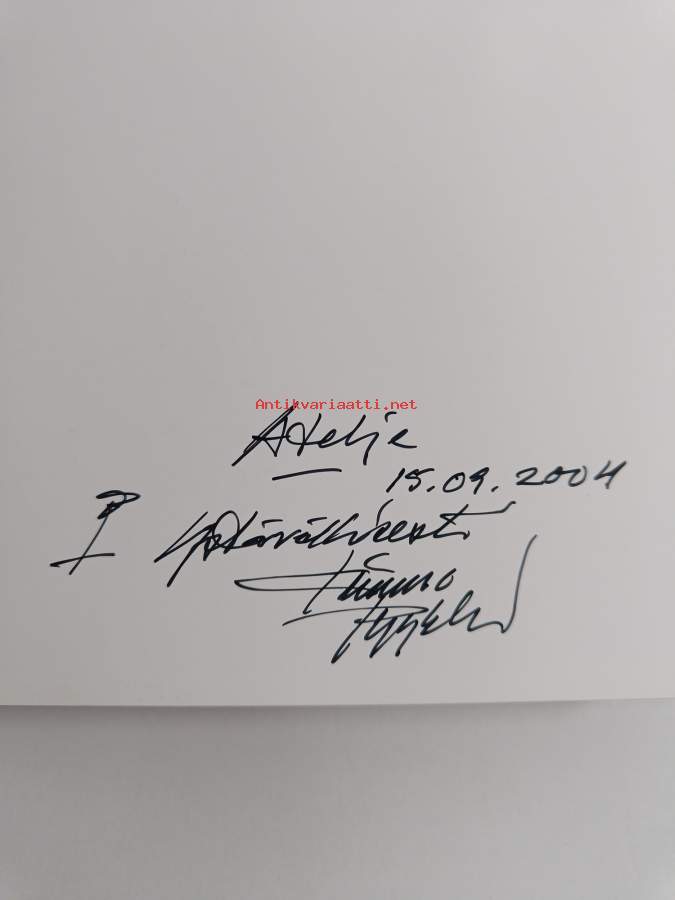 Antikvariaatti.net
Atelje
15.09.2004
Ystävällisesti
Kimmo